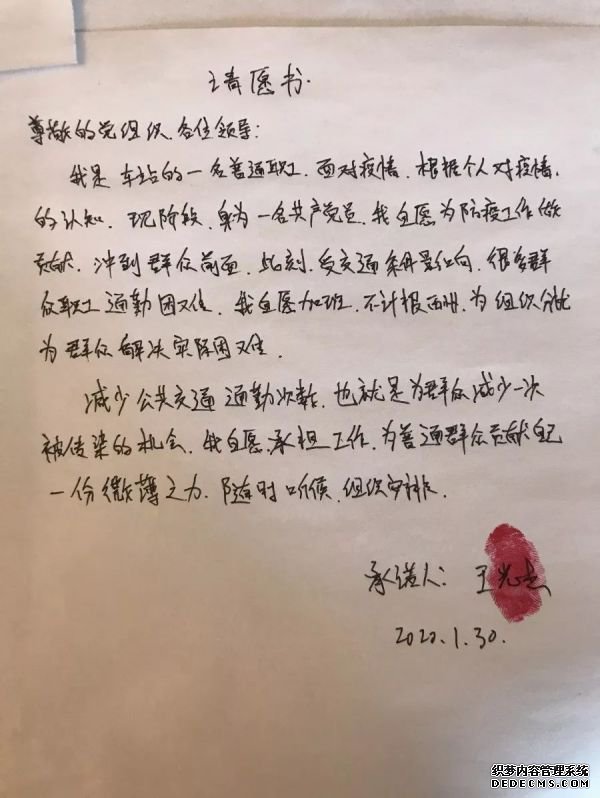 请愿书.
尊敬的党组织.各位领导:
我是车站的一名普通职工.面对疫情.根据个人对疫情.
的认知.现阶段.身为一名共产党员.我自愿为防疫工作做
贡献.冲到群众前面.此刻.受交通条件影响.很多群
众职工通勤困难.我自愿加班.不计报酬.为组织分忧
为群众解决实际困难.
减少公共交通通勤次数.也就是为群众减少一次
被传染的机会.我自愿.承担工作.为普通群众贡献自己
一份微薄之力.随时听候.组织安排.
承诺人: 王光
2020.1.30.
织梦内容管理系统
DEDECMS.COM